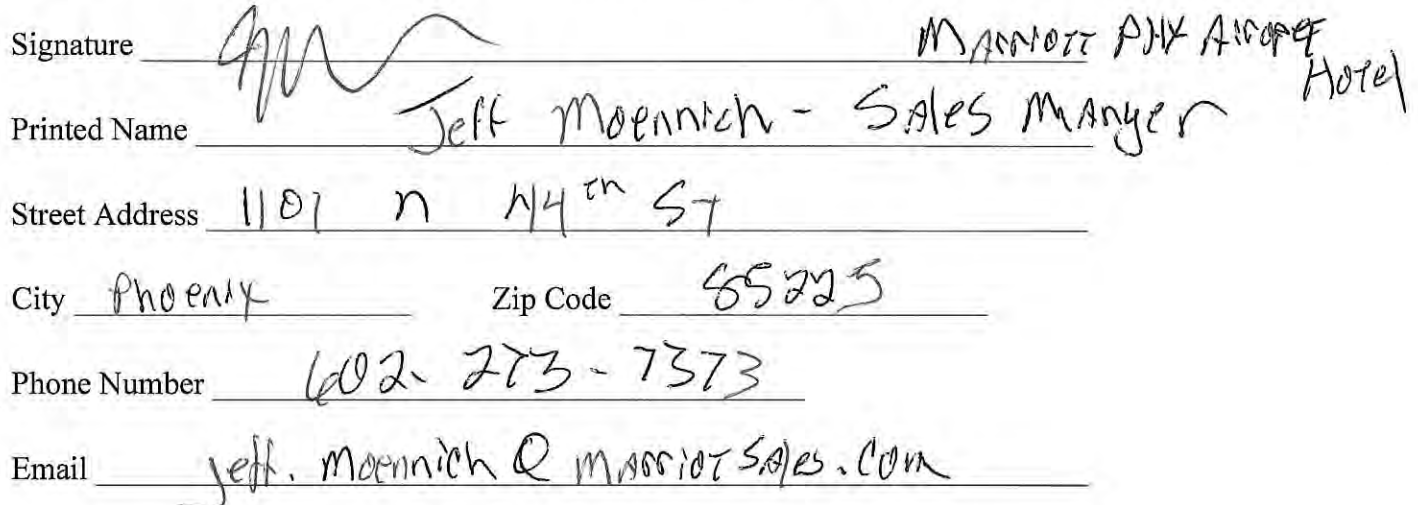 Signature Marriott PHX Airport
Hotel
Printed Name Jeff Moennich - Sales Manger
Street Address 1101 N 44th St
City Phoenix Zip Code 85225
Phone Number 602-273-7373
Email jeff.moennich@marriotsales.com